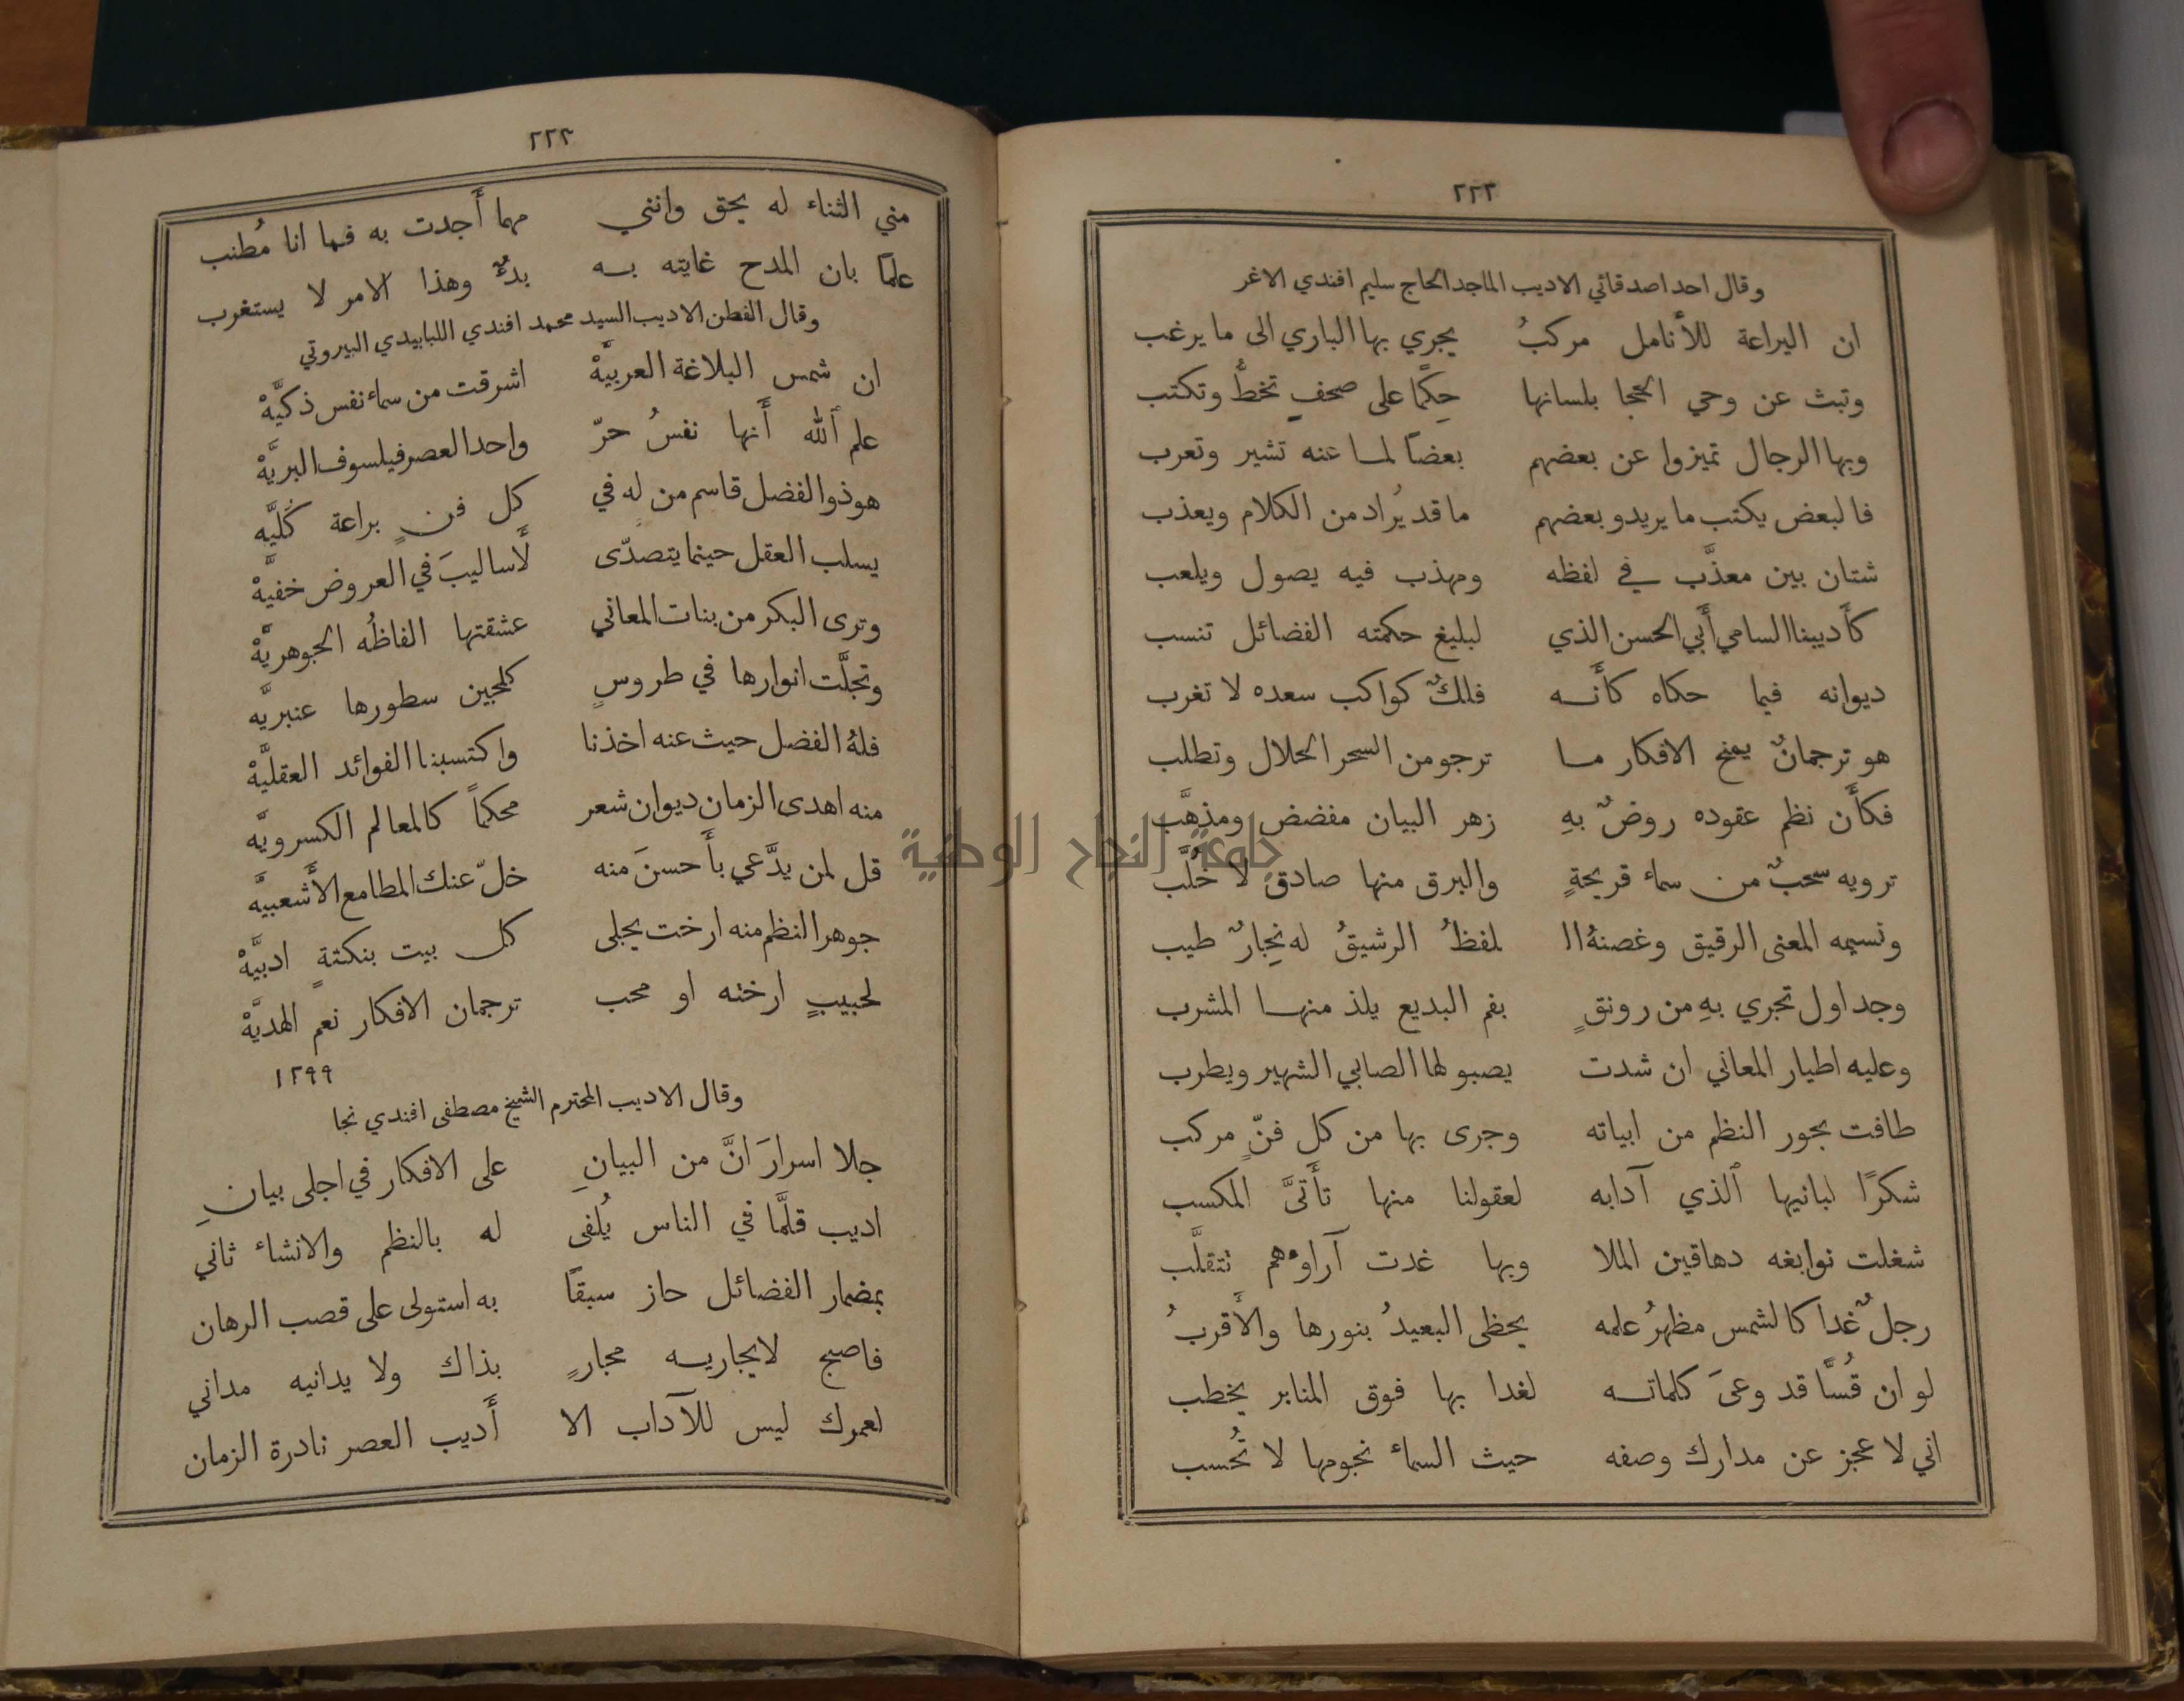 ٢٢٢
وقال احد اصدقائي الاديب الماجد الحاج سليم افندي الاغر
ان اليراعة للأنامل مركبُ يجري بها الباري الى ما يرغب
وتبث عن وحي الحجا بلسانها حِكمًا على صحفٍ تخطُّ وتكتب
وبها الرجال تميزوا عن بعضهم بعضًا لما عنه تشير وتعرب
فالبعض يكتب ما يريد وبعضهم ما قد يُراد من الكلام ويعذب
شتان بين معذَّب في لفظه ومهذب فيه يصول ويلعب
كأديبنا السامي أبي الحسن الذي لبليغ حكمته الفضائل تنسب
ديوانه فيما حكاه كأنه فلكٌ كواكب سعده لا تغرب
هو ترجمانٌ يمنح الافكار ما ترجو من السحر الحلال وتطلب
فكأن نظم عقوده روضٌ بهِ زهر البيان مفضض ومذهَّب
ترويه سحبٌ من سماء قريحةٍ والبرق منها صادق لا خُلَّب
ونسيمه المعنى الرقيق وغصنهُ ال لفظُ الرشيقُ له نِجارٌ طيب
وجداول تجري بهِ من رونقٍ بفم البديع يلذ منها المشرب
وعليه اطيار المعاني ان شدت يصبو لها الصابي الشهير ويطرب
طافت بحور النظم من ابياته وجرى بها من كل فنٍّ مركب
شكرًا لبانيها ٱلذي آدابه لعقولنا منها تأتَّى المكسب
شغلت نوابغه دهاقين الملا وبها غدت آراوءهم تتقلَّب
رجلٌ غدا كالشمس مظهرُ علمه يحظى البعيدُ بنورها والأقربُ
لو ان قُسًّا قد وعىَ كلماته لغدا بها فوق المنابر يخطب
اني لا عجز عن مدارك وصفه حيث السماء نجومها لا تُحسب
٢٢٣
مني الثناء له يحق وانني مهما أجدت به فما انا مُطنب
علمًا بان المدح غايته به بدءٌ وهذا الامر لا يستغرب
وقال الفطن الاديب السيد محمد افندي اللبابيدي البيروتي
ان شمس البلاغة العربيَّهْ اشرقت من سماء نفس ذكيَّهْ
علم ٱلله أنها نفسُ حرّ واحد العصر فيلسوف البريَّهْ
هو ذو الفضل قاسم من له في كل فنٍ براعة كُليَّه
يسلب العقل حينما يتصدّى لأساليبَ في العروض خفيَّهْ
وترى البكر من بنات المعاني عشقتها الفاظُه الجوهريَّهْ
وتجلَّت انوارها في طروسٍ كلجين سطورها عنبريَّه
فلهُ الفضل حيث عنه اخذنا واكتسبنا الفوائد العقليَّهْ
منه اهدى الزمان ديوان شعر محكمًا كالمعالم الكسرويَّه
قل لمن يدَّعي بأحسنَ منه خلّ عنك المطامع الأشعبيَّه
جوهر النظم منه ارخت يجلى كل بيت بنكتةٍ ادبيَّهْ
لحبيبٍ ارخته او محب ترجمان الافكار نعم الهديَّهْ
١٢٩٩
وقال الاديب المحترم الشيخ مصطفى افندي نجا
جلا اسرارَ انَّ من البيانِ على الافكار في اجلى بيانِ
اديب قلَّما في الناس يُلفى له بالنظم والانشاء ثاني
بمضمار الفضائل حاز سبقًا به استولى على قصب الرهان
فاصبح لايجاريه مجارٍ بذاك ولا يدانيه مداني
لعمرك ليس للآداب الا أديب العصر نادرة الزمان
جامعة النجاح الوطنية